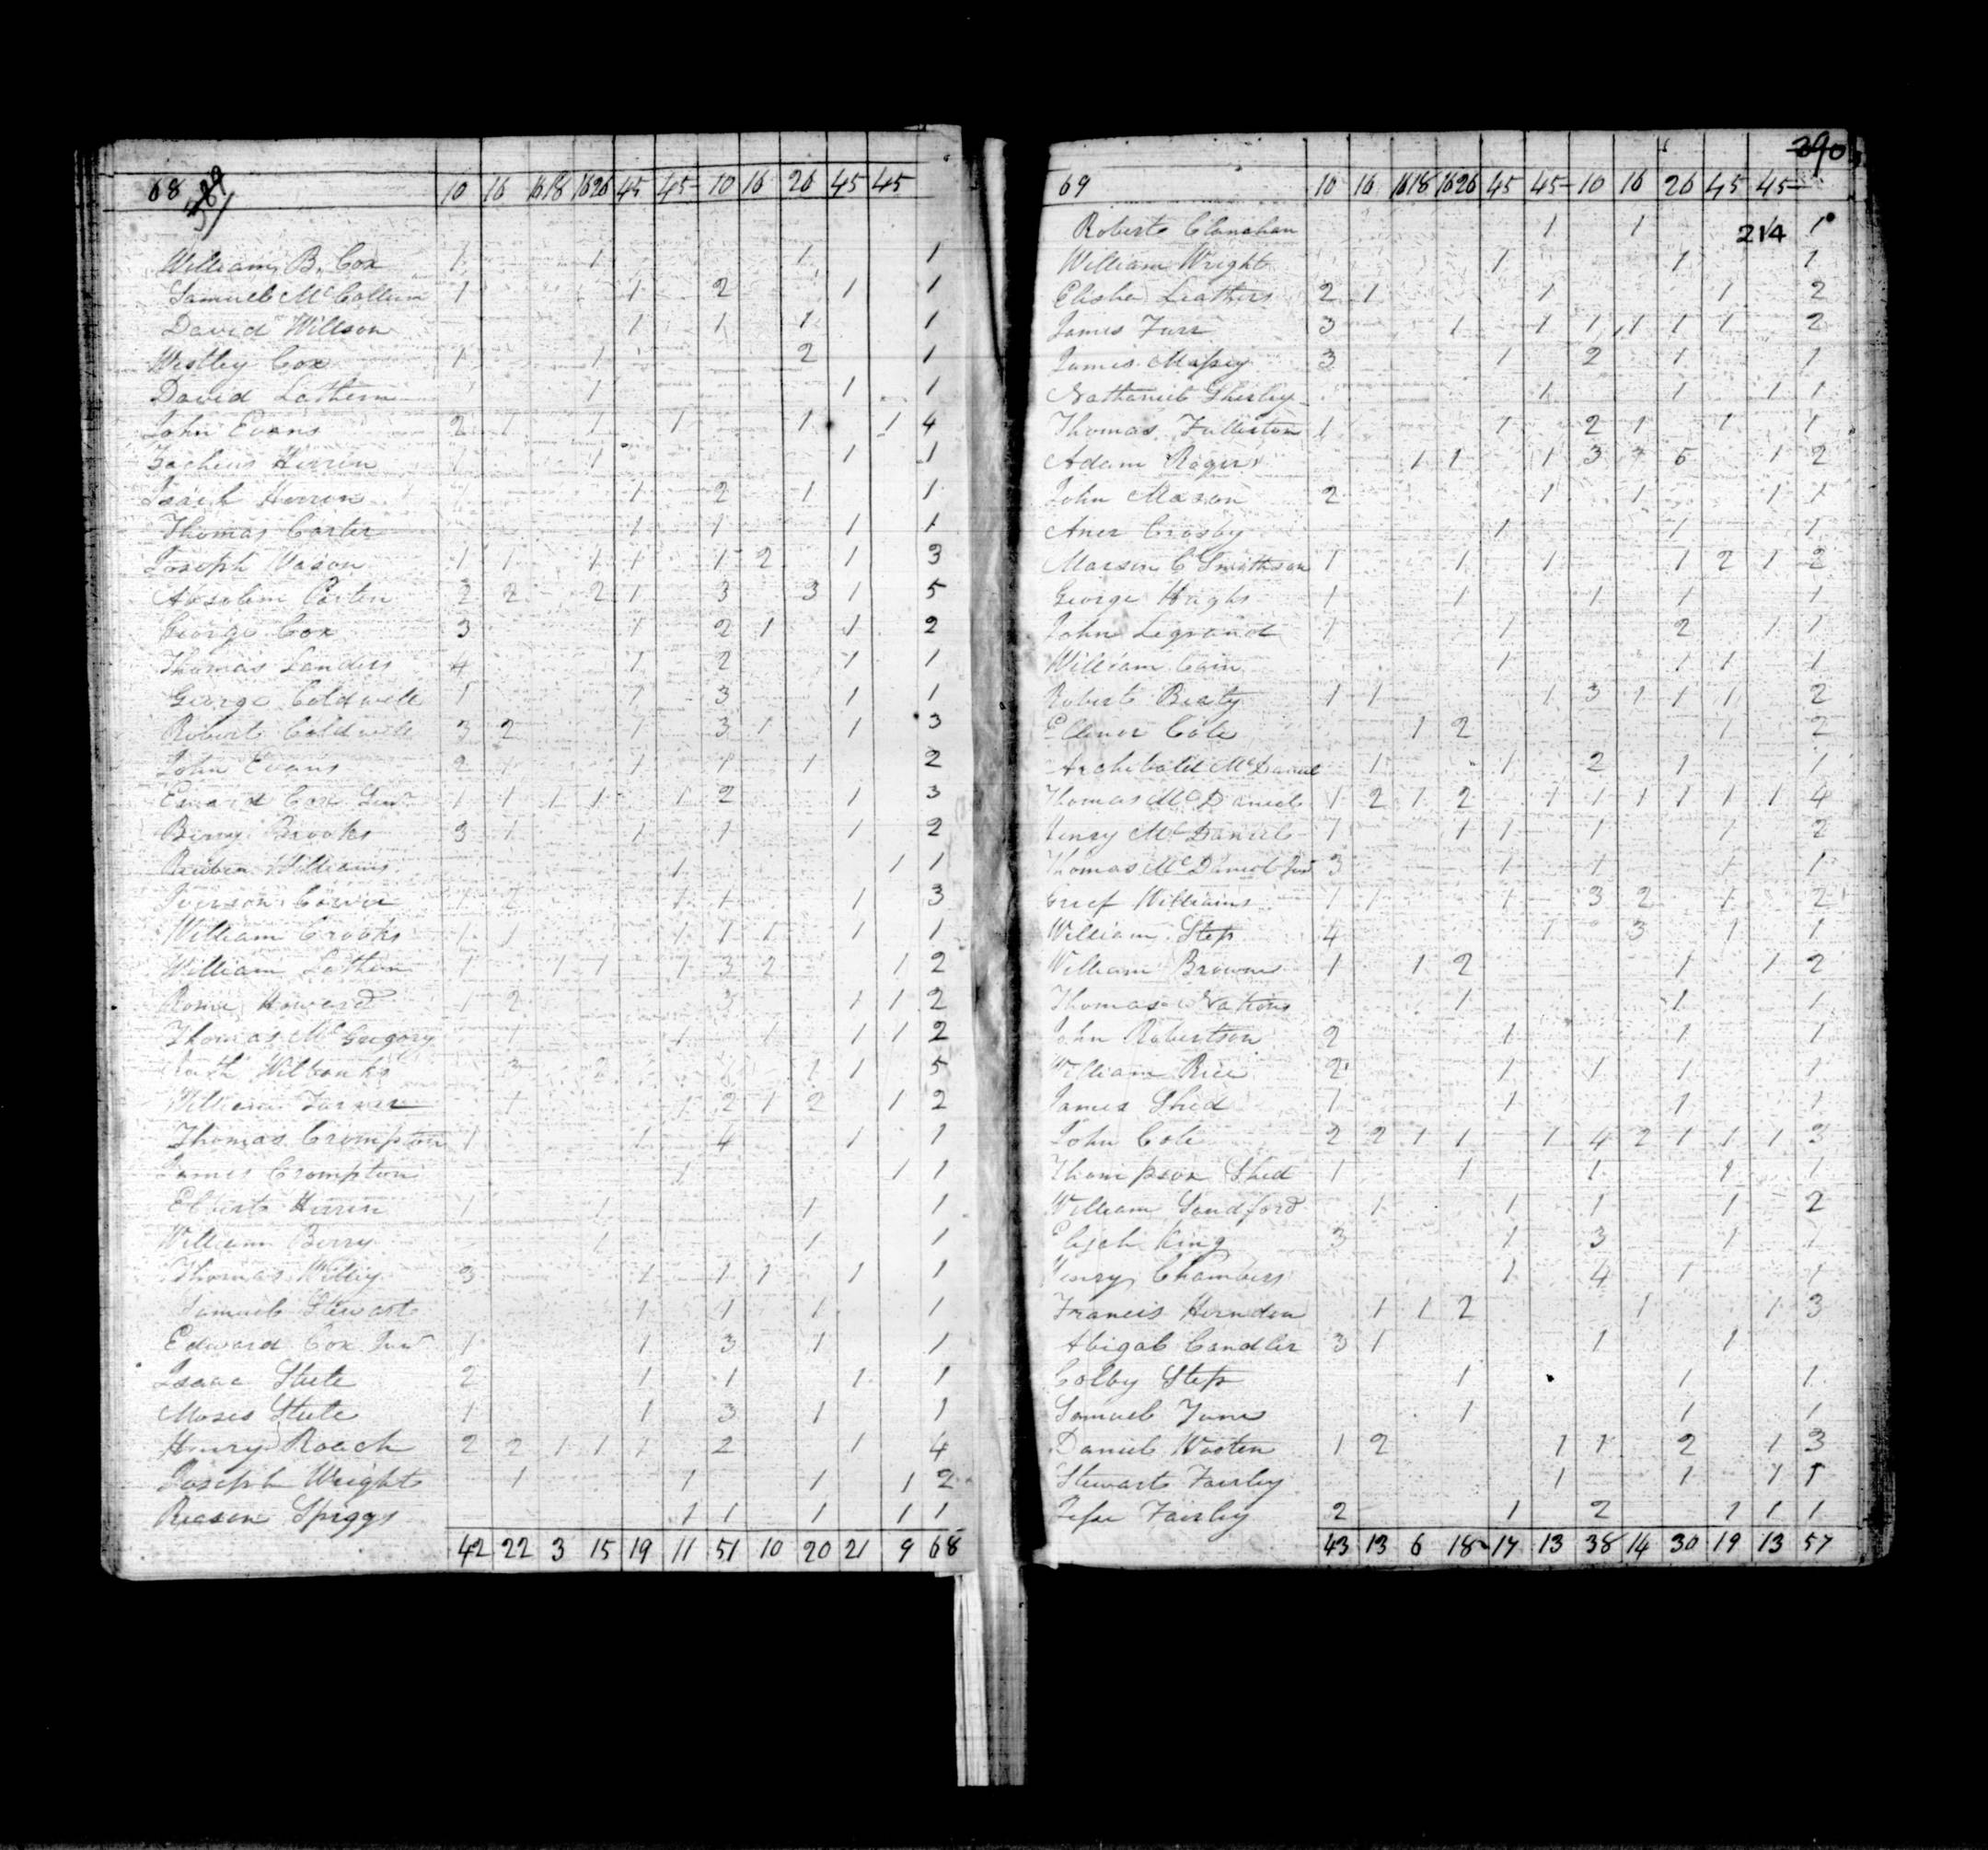 68 389
10 16 1618 1626 45 45 10 16 26 45 45
William B. Cox 1 1 1 1
Samuel McCollum 1 1 2 1 1
David Willson 1 1 1 1
Westley Cox 1 1 2 1
David Lathem 1 1 1
John Evans 2 1 1 1 1 1 4
Zacheus Herrin 1 1 1 1
Isaih Herren 1 2 1 1
Thomas Carter 1 1 1 1
Joseph Wason 1 1 1 1 1 2 1 3
Absolem Carter 2 2 2 1 3 3 1 5
George Cox 3 1 2 1 1 2
Thomas Landers 4 1 2 1 1
George Coldwell 1 1 3 1 1
Robert Coldwell 3 2 1 3 1 1 3
John Evans 2 1 1 1 1 2
Edward Cox Senr 1 1 1 1 1 2 1 3
Berry Brooks 3 1 1 1 1 2
Reuben Williams 1 1 1
Iverson 1 2 1 1 1 3
William Crooks 1 1 1 1 1 1 1
William Lathem 1 1 1 1 3 2 1 2
Howard 1 2 3 1 1 2
Thomas McGregory 1 1 1 1 1 2
Wilbanks 3 2 1 1 5
William Turner 1 1 2 1 2 1 2
Thomas Crompton 1 1 4 1 1
James Crompton 1 1 1
Elbert Herrin 1 1 1 1
William Berry 1 1 1
Thomas Willey 3 1 1 1 1 1
Samuel Stewart 1 1 1 1
Edward Cox Junr 1 1 3 1 1
Isaac Steele 2 1 1 1 1
Moses Steele 1 1 3 1 1
Henry Roach 2 2 1 1 1 2 1 4
Joseph Wright 1 1 1 1 2
Reason Spriggs 1 1 1 1 1
42 22 3 15 19 11 51 10 20 21 9 68
390
69 10 16 1618 1626 45 45 10 16 26 45 45
Robert Clanahan 1 1 214 1
William Wright 1 1 1
Elisha Leathers 2 1 1 1 2
James Furr 3 1 1 1 1 1 1 2
James Massey 3 1 2 1 1
Nathaniel Shirley 1 1 1 1
Thomas Fullerton 1 1 2 1 1 1
Adam Rogers 1 1 1 3 5 1 2
John Mason 2 1 1 1 1
Aner Crosby 1 1 1
Marson C Smithson 1 1 1 1 2 1 2
George Wright 1 1 1 1 1
John Legrand 1 1 2 1 1
William Cain 1 1 1 1
Robert Beaty 1 1 1 3 1 1 1 2
Elenor Cole 1 2 1 2
Archibald McDaniel 1 1 2 1 1
Thomas McDaniel 1 2 1 2 1 1 1 1 1 1 4
Henry McDaniel 1 1 1 1 1 2
Thomas McDaniel Junr 3 1 1 1 1
Creef Williams 1 1 1 3 2 1 2
William Step 4 1 3 1 1
William Brown 1 1 2 1 1 2
Thomas Nations 1 1 1
John Robertson 2 1 1 1
William Rice 2 1 1 1 1
James Shed 1 1 1 1
John Cole 2 2 1 1 1 4 2 1 1 1 3
Thompson Shed 1 1 1 1 1
William Sandford 1 1 1 1 2
Elijah King 3 1 3 1 1
Henry Chambers 1 4 1 1
Francis Herndon 1 1 2 1 1 3
Abigal Candler 3 1 1 1
Colby Step 1 1 1
Samuel June 1 1 1
Daniel Wooten 1 2 1 1 2 1 3
Stewart Fairley 1 1 1 1
Jesse Fairley 2 1 2 1 1 1
43 13 6 18 17 13 38 14 30 19 13 57